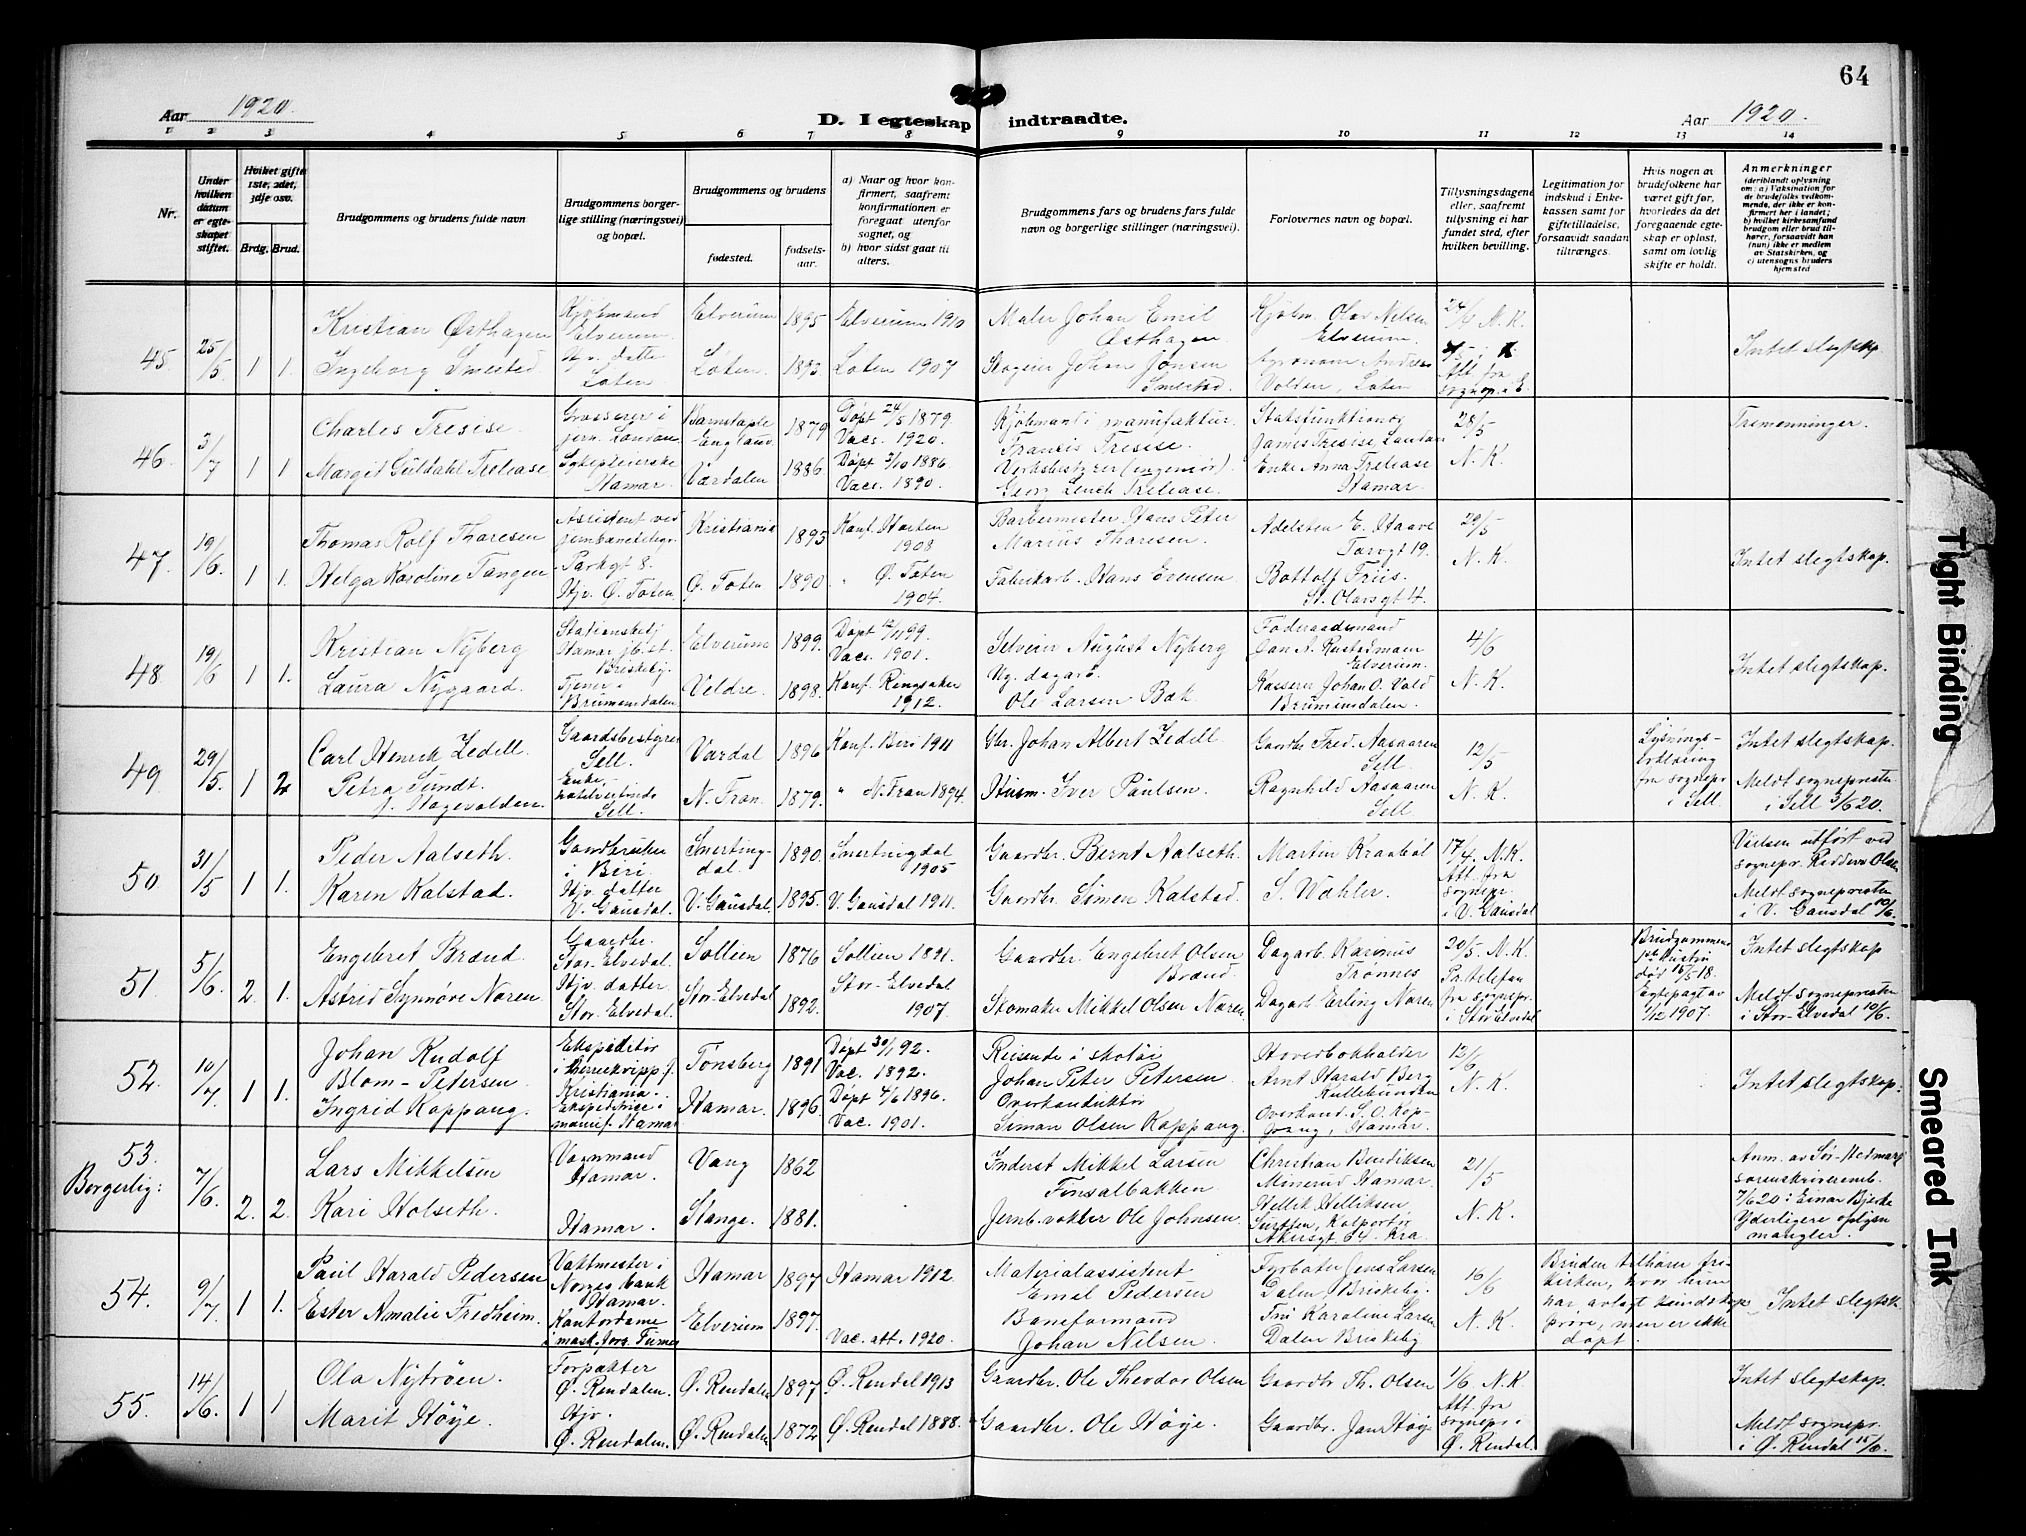 64
Aar 1920.
D. I egteskap indtraadte.
Aar 1920.
1 2 3 4 5 6 7 8 9 10 11 12 13 14
Nr.
Under hvilken datum er egteskapet stiftet.
Hvilket gifte 1ste, 2det, 3dje osv.
Brdg. Brud.
Brudgommens og brudens fulde navn
Brudgommens borgerlige stilling (næringsvei) og bopæl.
Brudgommens og brudens
fødested.
fødselsaar.
a) Naar og hvor konfirmert, saafremt konfirmationen er foregaat utenfor sognet, og
b) hvor sidst gaat til alters.
Brudgommens fars og brudens fars fulde navn og borgerlige stillinger (næringsvei).
Forlovernes navn og bopæl.
Tillysningsdagene eller, saafremt tillysning ei har fundet sted, efter hvilken bevilling.
Legitimation for indskud i Enkekassen samt for giftetilladelse, forsaavidt saadan tiltrænges.
Hvis nogen av brudefolkene har været gift før, hvorledes da det foregaaende egteskap er opløst, samt om lovlig skifte er holdt.
Anmerkninger
(deriblandt oplysning om: a) Vaksination for de brudefolks vedkommende, der ikke er konfirmert her i landet; b) hvilket kirkesamfund brudgom eller brud tilhører, forsaavidt han (hun) ikke er medlem av Statskirken, og c) utensogns bruders hjemsted
45. 25/5 1 1.
Kristian Østhagen
Ingeborg Smestad
Kjøbmand
Elverum.
Hjv. datter
Løten.
Elverum 1895 Elverum 1910
Løten. 1893 Løten 1907
Maler Johan Emil
Østhagen
Skogeier Johan Jönsen
Smestad.
Kjøbm. Olav Nilsen
Elverum.
Agronom Andreas
Volden, Løten
24/ N.K.
Att. fra
sognep. i E.
Intet slegtskp
46. 3/7 1 1
Charles Tresise.
Margit Guldahl Trelease
Grosserer i
jern. London.
Sykepleierske
Hamar.
Barnstaple
England 1879
Værdalen 1886.
Døpt 24/5 1879.
Vacs. 1920.
Døpt 3/10 1886.
Vacc. 1890.
Kjøbmand i manufaktur.
Francis Tresise.
Verksbestyrer (ingeniør).
Geor. Lench Trelease.
Statsfunktionær
James Tresise, London
Enke Anna Trelease
Hamar.
28/5
N.K.
Tremenninger.
47. 19/6 1 1.
Thomas Rolf Thoresen
Helga Karoline Tangen
Assistent ved
jernbanetelegr.
Parkgt 8.
Hjv. Ø. Toten.
Kristiania 1893 Konf. Horten
1908
Ø. Toten 1890. " Ø. Toten
1904.
Barbermester Hans Peter
Marius Thoresen.
Fabrikarb. Hans Evensen
Adelsten E. Haave
Torvgt 19.
Bottolf Friis.
St. Olavsgt 4.
29/5
N.K.
Intet slegtskap.
48 19/6 1 1.
Kristian Nyberg
Laura Nygaard.
Stationsbetj
Hamar jb.st.
Briskeby.
Tjener.
Brumunddalen
Elverum 1899.
Veldre. 1898.
Døpt 12/11 99.
Vacs. 1901.
Konf. Ringsaker
1912.
Selveier August Nyberg
Ole Larsen Bak
Føderaadsmand
Elverum.
Kasserer Johan O. Vold
Brumunddalen.
4/6
N.K.
Intet slegtskap.
49 29/5. 1 2
Carl Henrik Zedell
Petra Sundt.
f. Hagevolden.
Gaardsbestyrer
Sell.
Enke
Sell.
Vardal 1896 Konf. Biri 1911
N. Fron. 1879. " N. Fron 1894.
Gbr. Johan Albert Zedell
Husm. Iver Paulsen.
Gaardbr Fred. Aasaaren
Sell.
Ragnhild Aasaaren
Sell
12/5
N.K.
Lysnings-
fra sognepr
i Sell.
Intet slegtskap.
Meldt sognepresten
i Sell 3/6 20.
50 31/5 1 1.
Peder Aalseth.
Karen Kalstad.
Gaardbruker
i Biri
Hjv. datter
V. Gausdal.
Snertingdal. 1890.
V. Gausdal. 1895.
Snertingdal
1905
V. Gausdal 1911.
Gaardbr. Bernt Aalseth.
Gaardbr. Simen Kalstad.
Martin Kraabøl
S. Wahler.
17/4. N.K.
Att. fra
sognepr.
i V. Gausdal
Vielsen utført ved
sognepr. Olsen
Meldt sognepresten
i V. Gausdal 10/6.
51. 5/6. 2. 1.
Engebret Brænd.
Astrid Synnøve Noren.
Gaardbr.
Stor-Elvedal.
Hjv. datter
Stor. Elvedal.
Sollien 1876 Sollien 1891.
Stor-Elvedal 1892. Stor-Elvedal
1907.
Gaardbr. Engebret Olsen
Brænd.
Skomaker Mikkel Olsen Noren.
Dagarb. Rasmus
Trønnes
Dagarb. Erling Noren
20/5. N.K.
Pr. telefon
fra sognepr.
i Stor Elvedal
Brudgommens
1ste hustru
død 15/5 18.
Egtepagt av
1/12 1907.
Intet slegtskap
Meldt sognepresten
i Stor-Elvedal 10/6.
52. 10/7. 1 1.
Johan Rudolf
Blom-Petersen
Ingrid Koppang.
Ekspeditør
Kristiania.
Ekspeditrice i
manuf. Hamar
Tønsberg 1891
Hamar. 1896.
Døpt 30/1 92.
Vac. 1892.
Døpt 4/6 1896.
Vac. 1901.
Reisende i skotøi
Johan Peter Petersen
Overkonduktør
Simon Olsen Koppang.
Hovedbokholder
Arnt Harald Berg
Kullebunden
Overkond. S. O. Kop-
pang, Hamar.
12/6
N.K.
Intet slegtskap.
53.
Borgerlig: 7/6. 2. 2.
Lars Mikkelsen
Kari Holseth.
Vognmand
Hamar.
Hamar.
Vang 1862
Stange. 1881.
Inderst Mikkel Larsen
Finsalbakken
Jernb. vokter Ole Johnsen.
Christian Bendiksen
Minerud Hamar.
Hellik Helliksen
Kolportør
Akersgt. 64. Kra.
21/5
N.K.
Anm. av Sør-Hedmark
sorenskriveremb.
7/6 20: Einar Bjerke
Yderligere oplysn
mangler.
54. 9/7. 1 1.
Paul Harald Pedersen
Ester Amalie Fredheim.
Vaktmester i
Norges bank
Hamar.
Kontordame
i mask.forr. Furnes
Hamar 1897 Hamar 1912.
Elverum 1897. Vac. att. 1920.
Materialassistent
Emil Pedersen
Baneformand
Johan Nilsen.
Fyrbøter Jens Larsen
Dalen Briskeby.
Fru Karoline Larsen
Dalen Briskeby
16/6
N.K.
Bruden tilhører fri-
kirken, hvor hun
har avlagt kundskaps
prøve, men er ikke
døpt.
Intet slegtsk.
55. 14/6. 1 1.
Ola Nytrøen.
Marit Høye.
Forpakter
Ø. Rendalen.
Hjv.
Ø. Rendalen.
Ø. Rendalen 1897 Ø. Rendal 1913
Ø. Rendalen 1872 Ø. Rendal 1888.
Gaardbr. Ole Theodor Olsen
Gaardbr. Ole Høye.
Gaardbr Th. Olsen
Gaardbr. Jon Høye
1/6. N.K.
Att. fra
sognepr. i
Ø. Rendal.
Intet slegtskap.
Meldt sognepr.
i Ø. Rendal 15/6.
Tight Binding
Smeared Ink